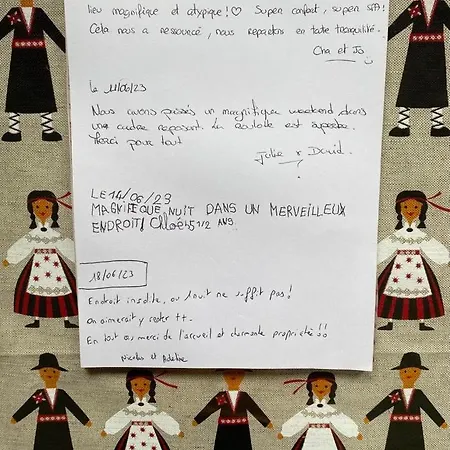 lieu magnifique et atypique !♡ Super confort, super SPA!
Cela nous a ressourcé, nous repartons en toute tranquilité.
Cha et Jo
le 11/06/23
Nous avons passés un magnifique weekend dans
un cadre reposant. La est superbe.
Merci pour tout
Julie & David.
LE 14/06/23
MAGNIFEQUE NUIT DANS UN MERVEILLEUX
ENDROIT/ Chloé 5 1/2 ANS
18/06/23
Endroit insolite, ou 1 nuit ne suffit pas!
On aimerait y rester ++.
En tout cas merci de l'accueil et charmante propriété!!
Nicolas et Adeline